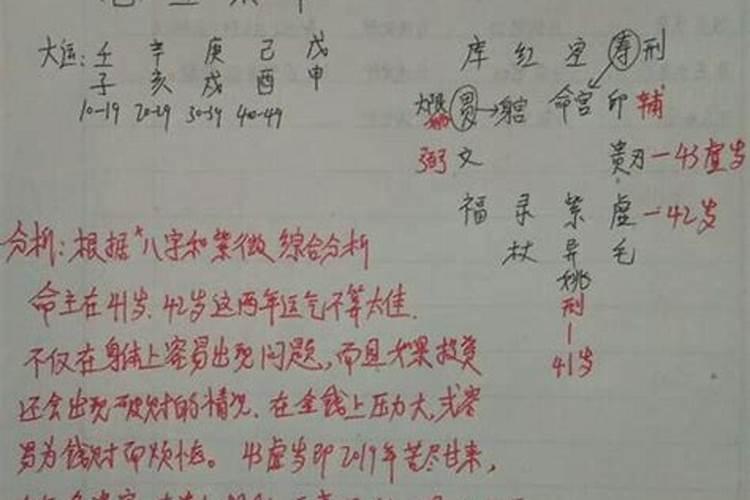 大运：壬 辛 庚 己 戊
子 亥 戌 酉 申
10-19 20-29 30-39 40-49
库 红 空 寿 刑
大限 贵→ 命宫 印 辅
弼 文 贵刃-43虚岁
福 异 紫 虚-42岁
杖 异 毛
姚
刑
41岁
分析：根据"八字和紫微综合分析
命主在41岁、42岁这两年运气不算太佳.
不仅在身体上容易出现问题,而且如果投资
还会出现破财的情况、在金钱上压力大,或容
易为钱财而烦恼。43虚岁即2019年苦尽甘来,